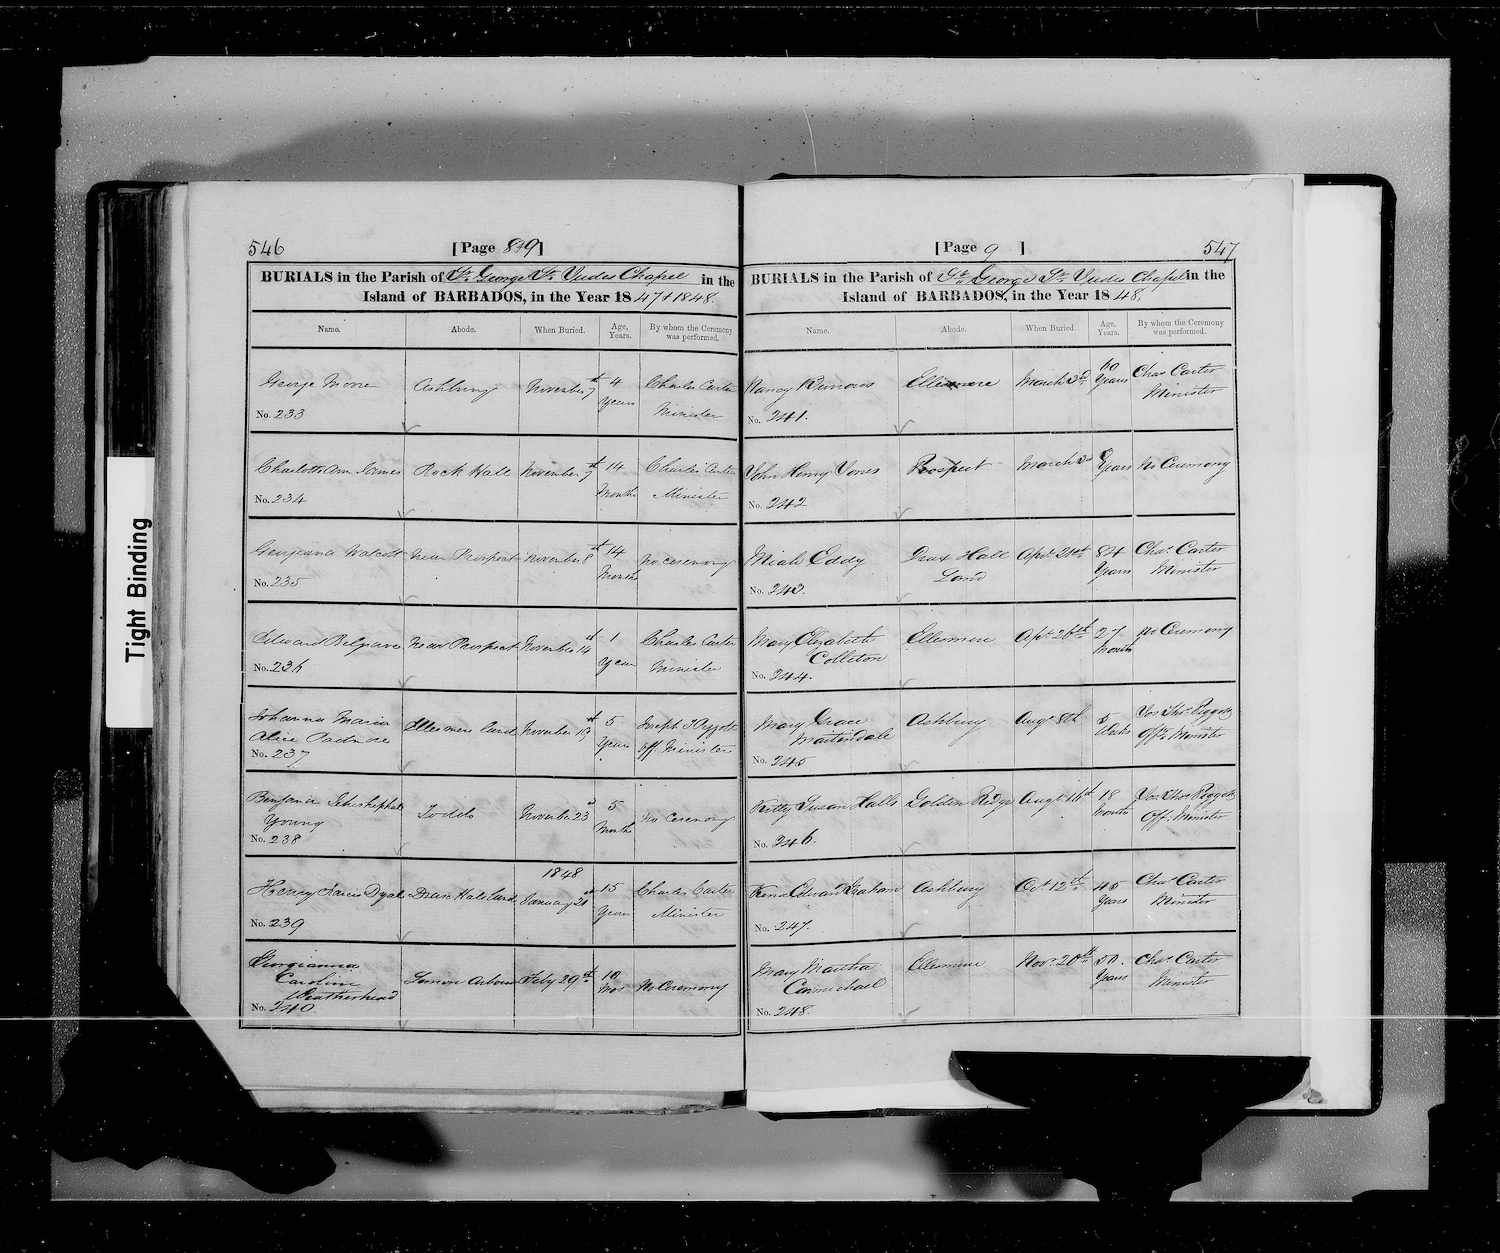 Tight Binding
546
[Page 8+9]
BURIALS in the Parish of St. George St. Judes Chapel in the
Island of BARBADOS, in the Year 1847+1848.
Name. Abode. When Buried. Age, Years. By whom the Ceremony was performed.
George Moore Ashbury November 7th 4 Years Charles Carter Minister
No. 233
Charlotte Ann James Rock Hall November 7th 14 Months Charles Carter Minister
No. 234
Georgeana Walcott Near Prospect November 8th 14 Months No ceremony
No. 235
Edward Belgrave Near Prospect November 14th 1 Year Charles Carter Minister
No. 236
Johanna Maria
Alice Ellesmere Land November 5 Years Joseph T Piggott Off. Minister
No. 237
Benjamin
Young November 23d 5 Months No ceremony
No. 238
1848
Henry Francis Drax Hall Land January 15 Years Charles Carter Minister
No. 239
Georgianna
Caroline
Weatherhead Feby 29th 10 Mos No Ceremony
No. 240
547
[Page 9 ]
BURIALS in the Parish of St. George St. Judes Chapel in the
Island of BARBADOS, in the Year 1848.
Name. Abode. When Buried. Age, Years. By whom the Ceremony was performed.
Nancy Ellesmere March 3d 60 Years Chas Carter Minister
No. 241.
John Henry Jones Prospect March Years No Ceremony
No. 242
Miah Eddy Drax Hall Land Apl. 21st 84 Years Chas. Carter Minister
No. 243.
Mary Elizabeth
Colleton Ellesmere Apl. 26th 27 Months No Ceremony
No. 244.
Mary Grace
Martindale Ashbury Augt 8th 5 Weeks Jos: Thos. Piggott Offg. Minister
No. 245
Kitty Susan Halls Golden Ridge Augt 16th 18 Months Jos Thos Piggott Off: Minister
No. 246.
Edward Graham Ashbury Oct. 12th 45 Years Chas. Carter Minister
No. 247.
Mary Martha
Carmichael Ellesmere Nov. 20th 50. Years Chas. Carter Minister
No. 248.